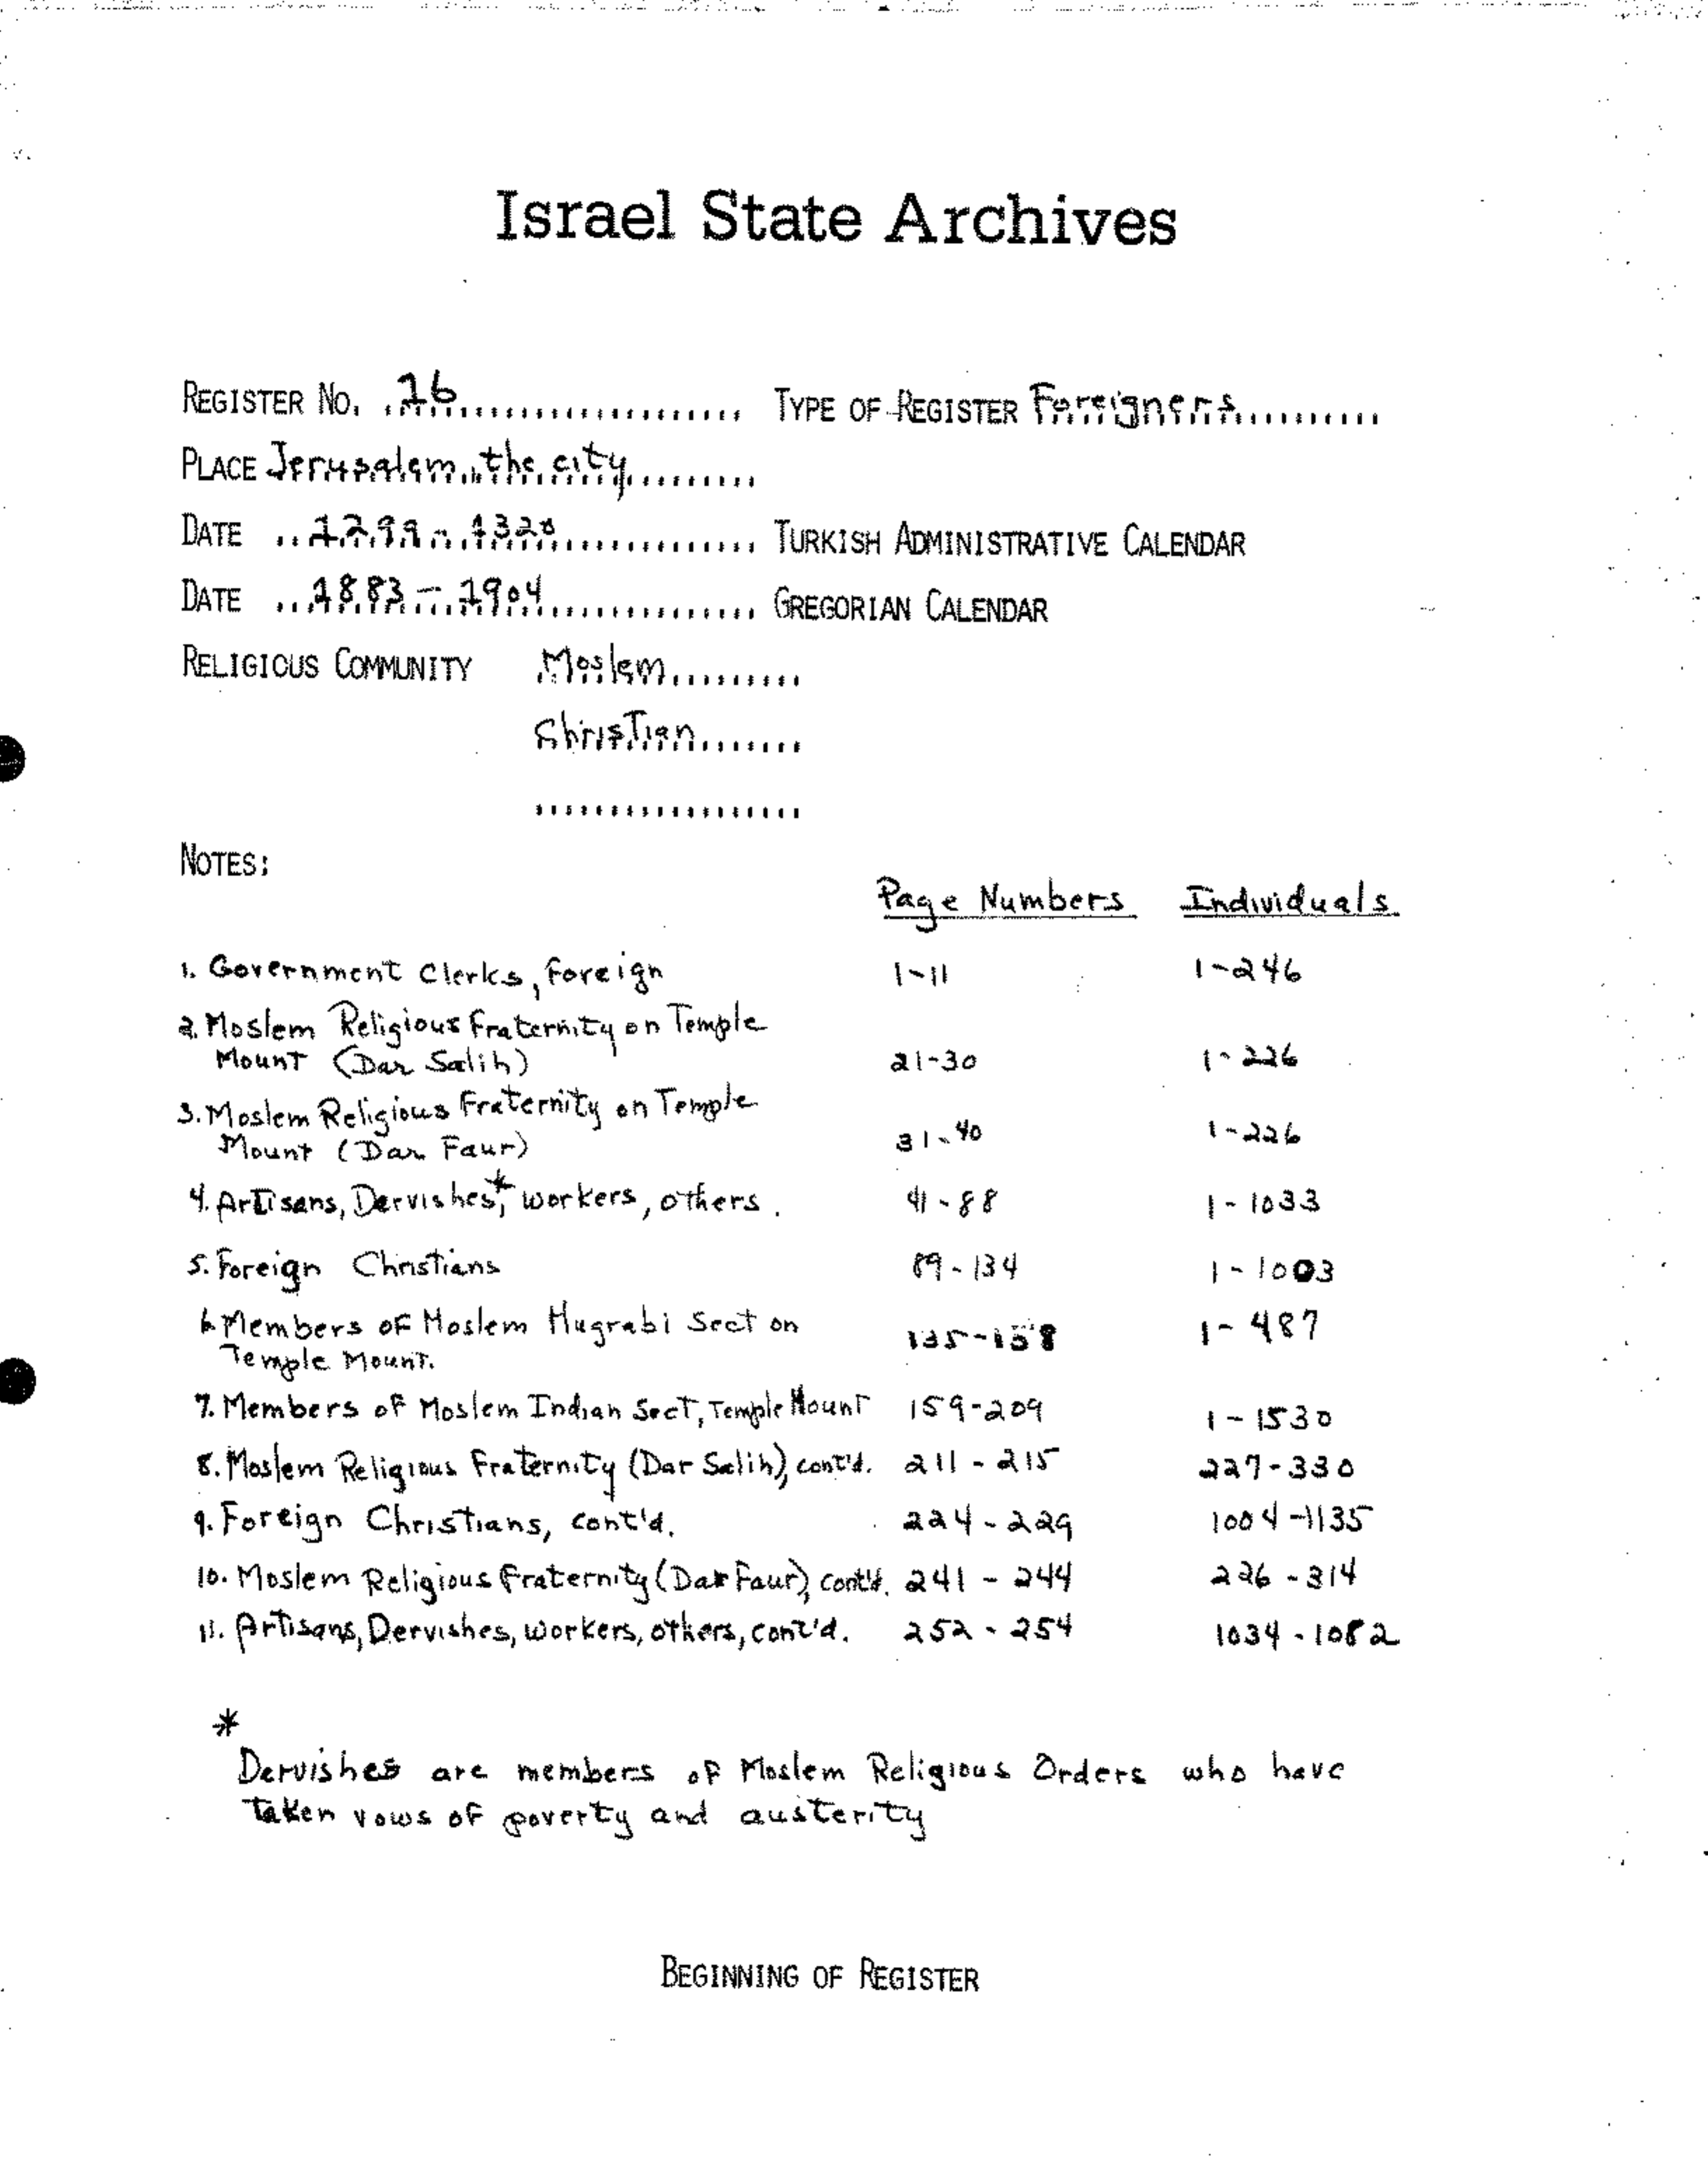 Israel State Archives
REGISTER No. 16 TYPE OF REGISTER Foreigners
PLACE Jerusalem, the city
DATE 1299 - 1320 TURKISH ADMINISTRATIVE CALENDAR
DATE 1883 - 1904 GREGORIAN CALENDAR
RELIGIOUS COMMUNITY Moslem
Christian
NOTES:
Page Numbers Individuals
1. Government Clerks, Foreign 1-11 1-246
2. Moslem Religious Fraternity on Temple
Mount (Dar Salih) 21-30 1-226
3. Moslem Religious Fraternity on Temple
Mount (Dar Faur) 31-40 1-226
4. Artisans, Dervishes,* workers, others. 41-88 1-1033
5. Foreign Christians 89-134 1-1003
6. Members of Moslem Mugrabi Sect on 135-158 1-487
Temple Mount.
7. Members of Moslem Indian Sect, Temple Mount 159-209 1-1530
8. Moslem Religious Fraternity (Dar Salih), cont'd. 211-215 227-330
9. Foreign Christians, cont'd. 224-229 1004-1135
10. Moslem Religious Fraternity (Dar Faur), cont'd. 241-244 226-314
11. Artisans, Dervishes, workers, others, cont'd. 252-254 1034-1082
*
Dervishes are members of Moslem Religious Orders who have
taken vows of poverty and austerity
BEGINNING OF REGISTER